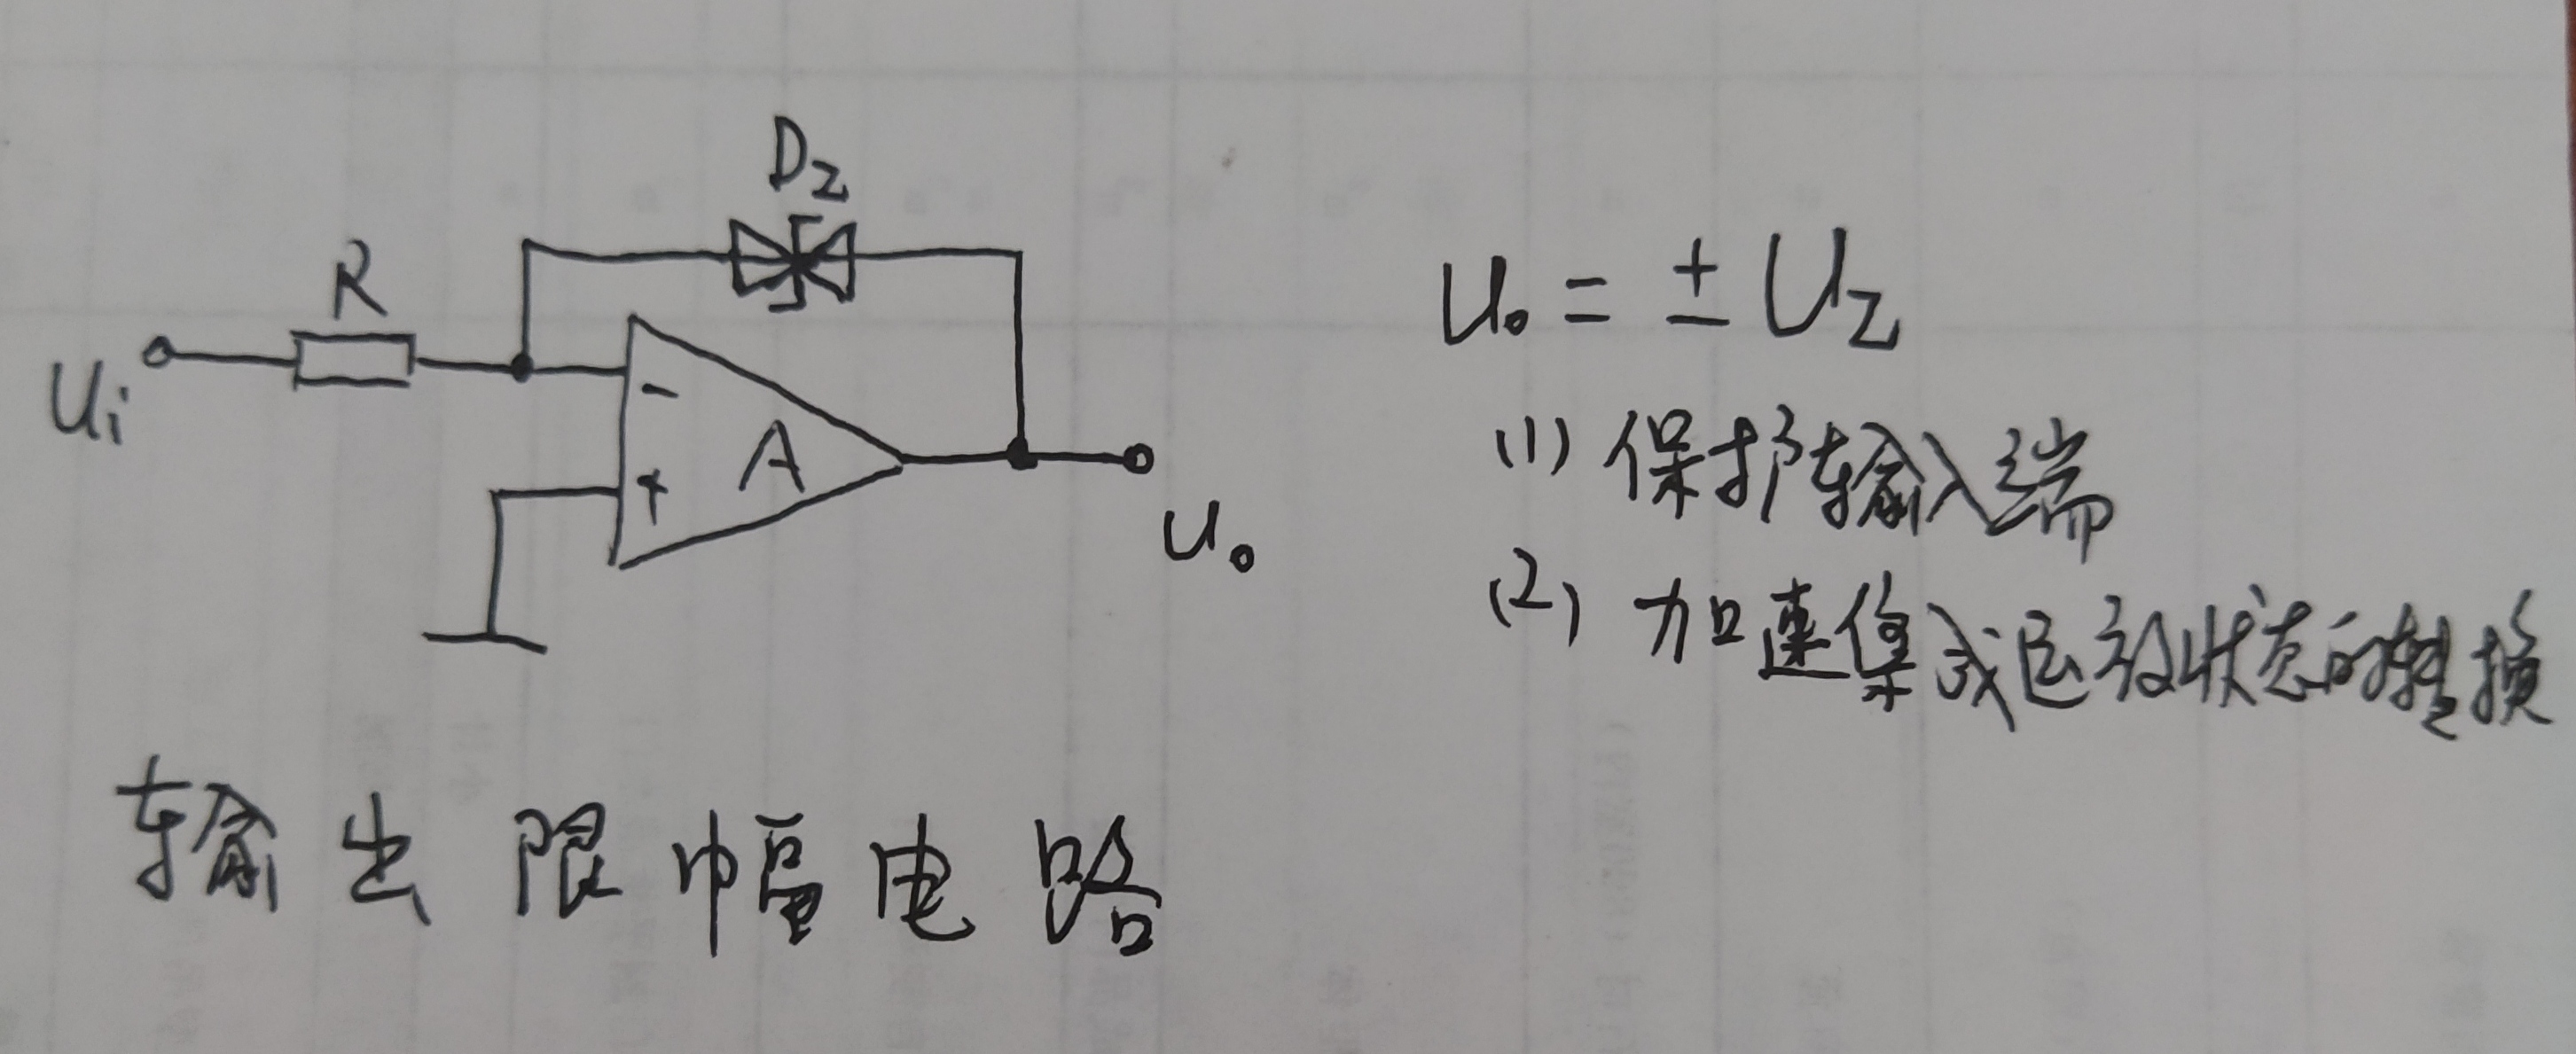 D_Z
R
U_i
-
A
+
u_o
u_o = ± U_Z
(1) 保护输入端
(2) 加速集成运放状态的转换
输出限幅电路